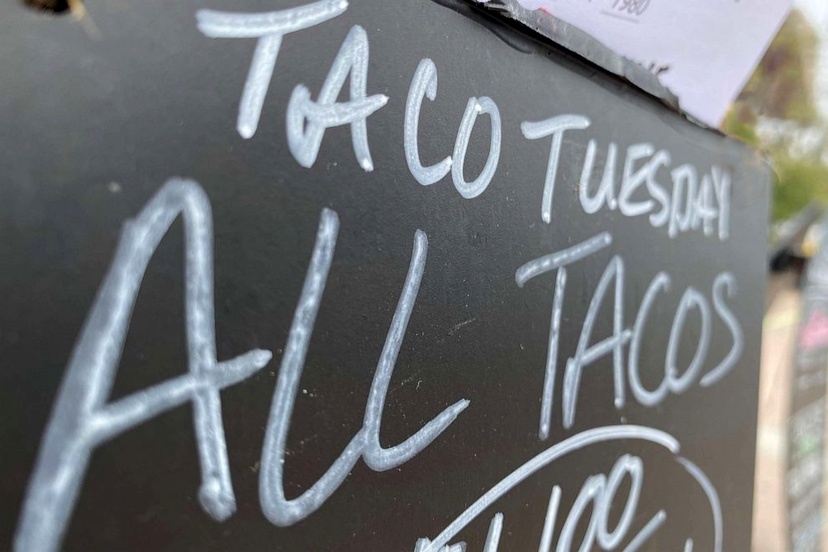 1980
TACO TUESDAY
ALL TACOS